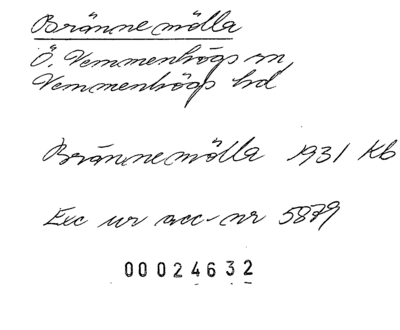 Brännemölla
Ö. Vemmenhögs sn,
Vemmenhögs hd
Brännemölla 1931 Kb
Exc ur acc-nr 5879
00024632